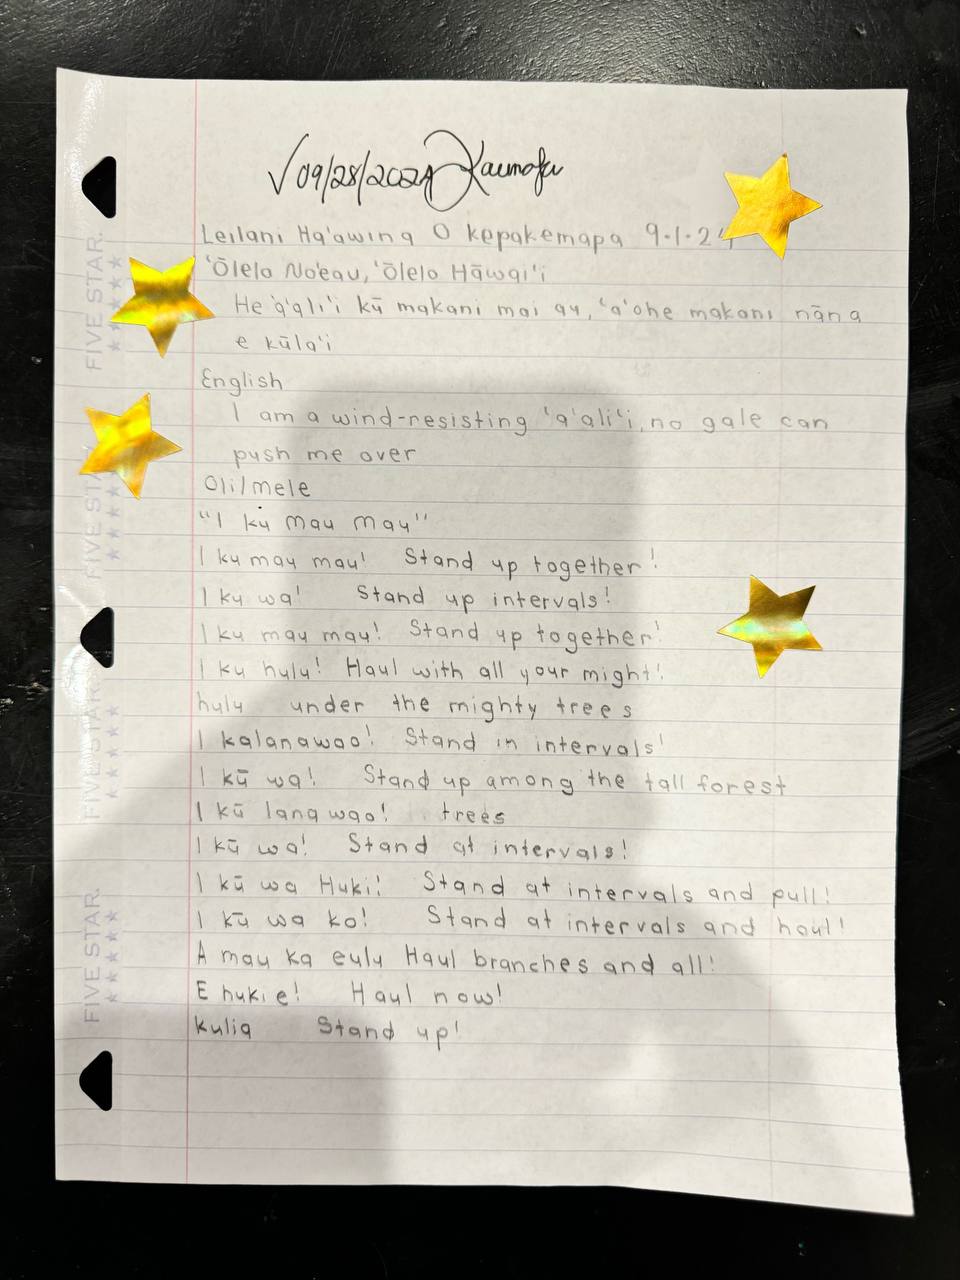 √09/28/2024 Kaumofu
Leilani Ha'awina O kepakemapa 9.1.24
'Ōlelo No'eau, 'Ōlelo Hāwai'i
He 'a'ali'i kū makani mai au, 'a'ohe makani nāna
e kūla'i
English
I am a wind-resisting 'a'ali'i, no gale can
push me over
Oli/mele
"I ku mau mau"
I ku mau mau! Stand up together!
I ku wa! Stand up intervals!
I ku mau mau! Stand up together!
I ku hulu! Haul with all your might!
hulu under the mighty trees
I kalanawao! Stand in intervals!
I kū wa! Stand up among the tall forest
I kū lana wao! trees
I kū wa! Stand at intervals!
I kū wa Huki! Stand at intervals and pull!
I kū wa ko! Stand at intervals and haul!
A mau ka eulu Haul branches and all!
E huki e! Haul now!
kulia Stand up!
FIVE STAR.
FIVE STAR.
FIVE STAR.
FIVE STAR.